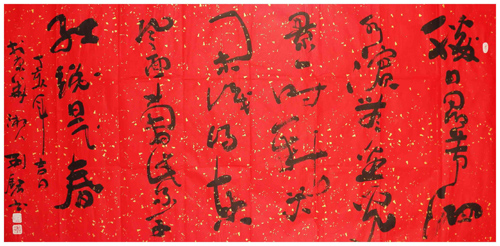 勝日尋芳泗
水濱無邊光
景一時新等
閑識得東
風面萬紫千
紅總是春
吉日